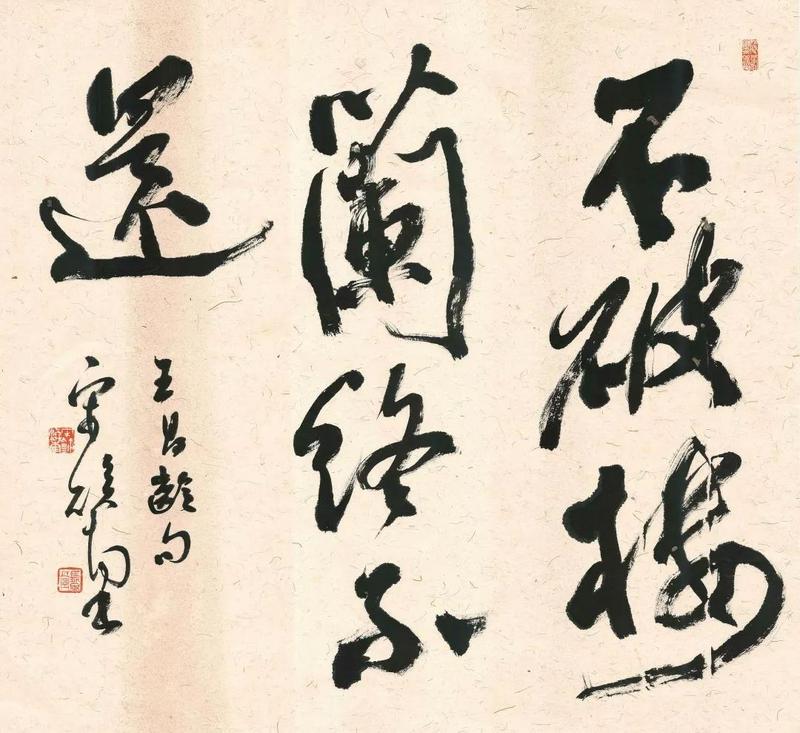 不破樓
蘭終不
還
王昌齡句
宋